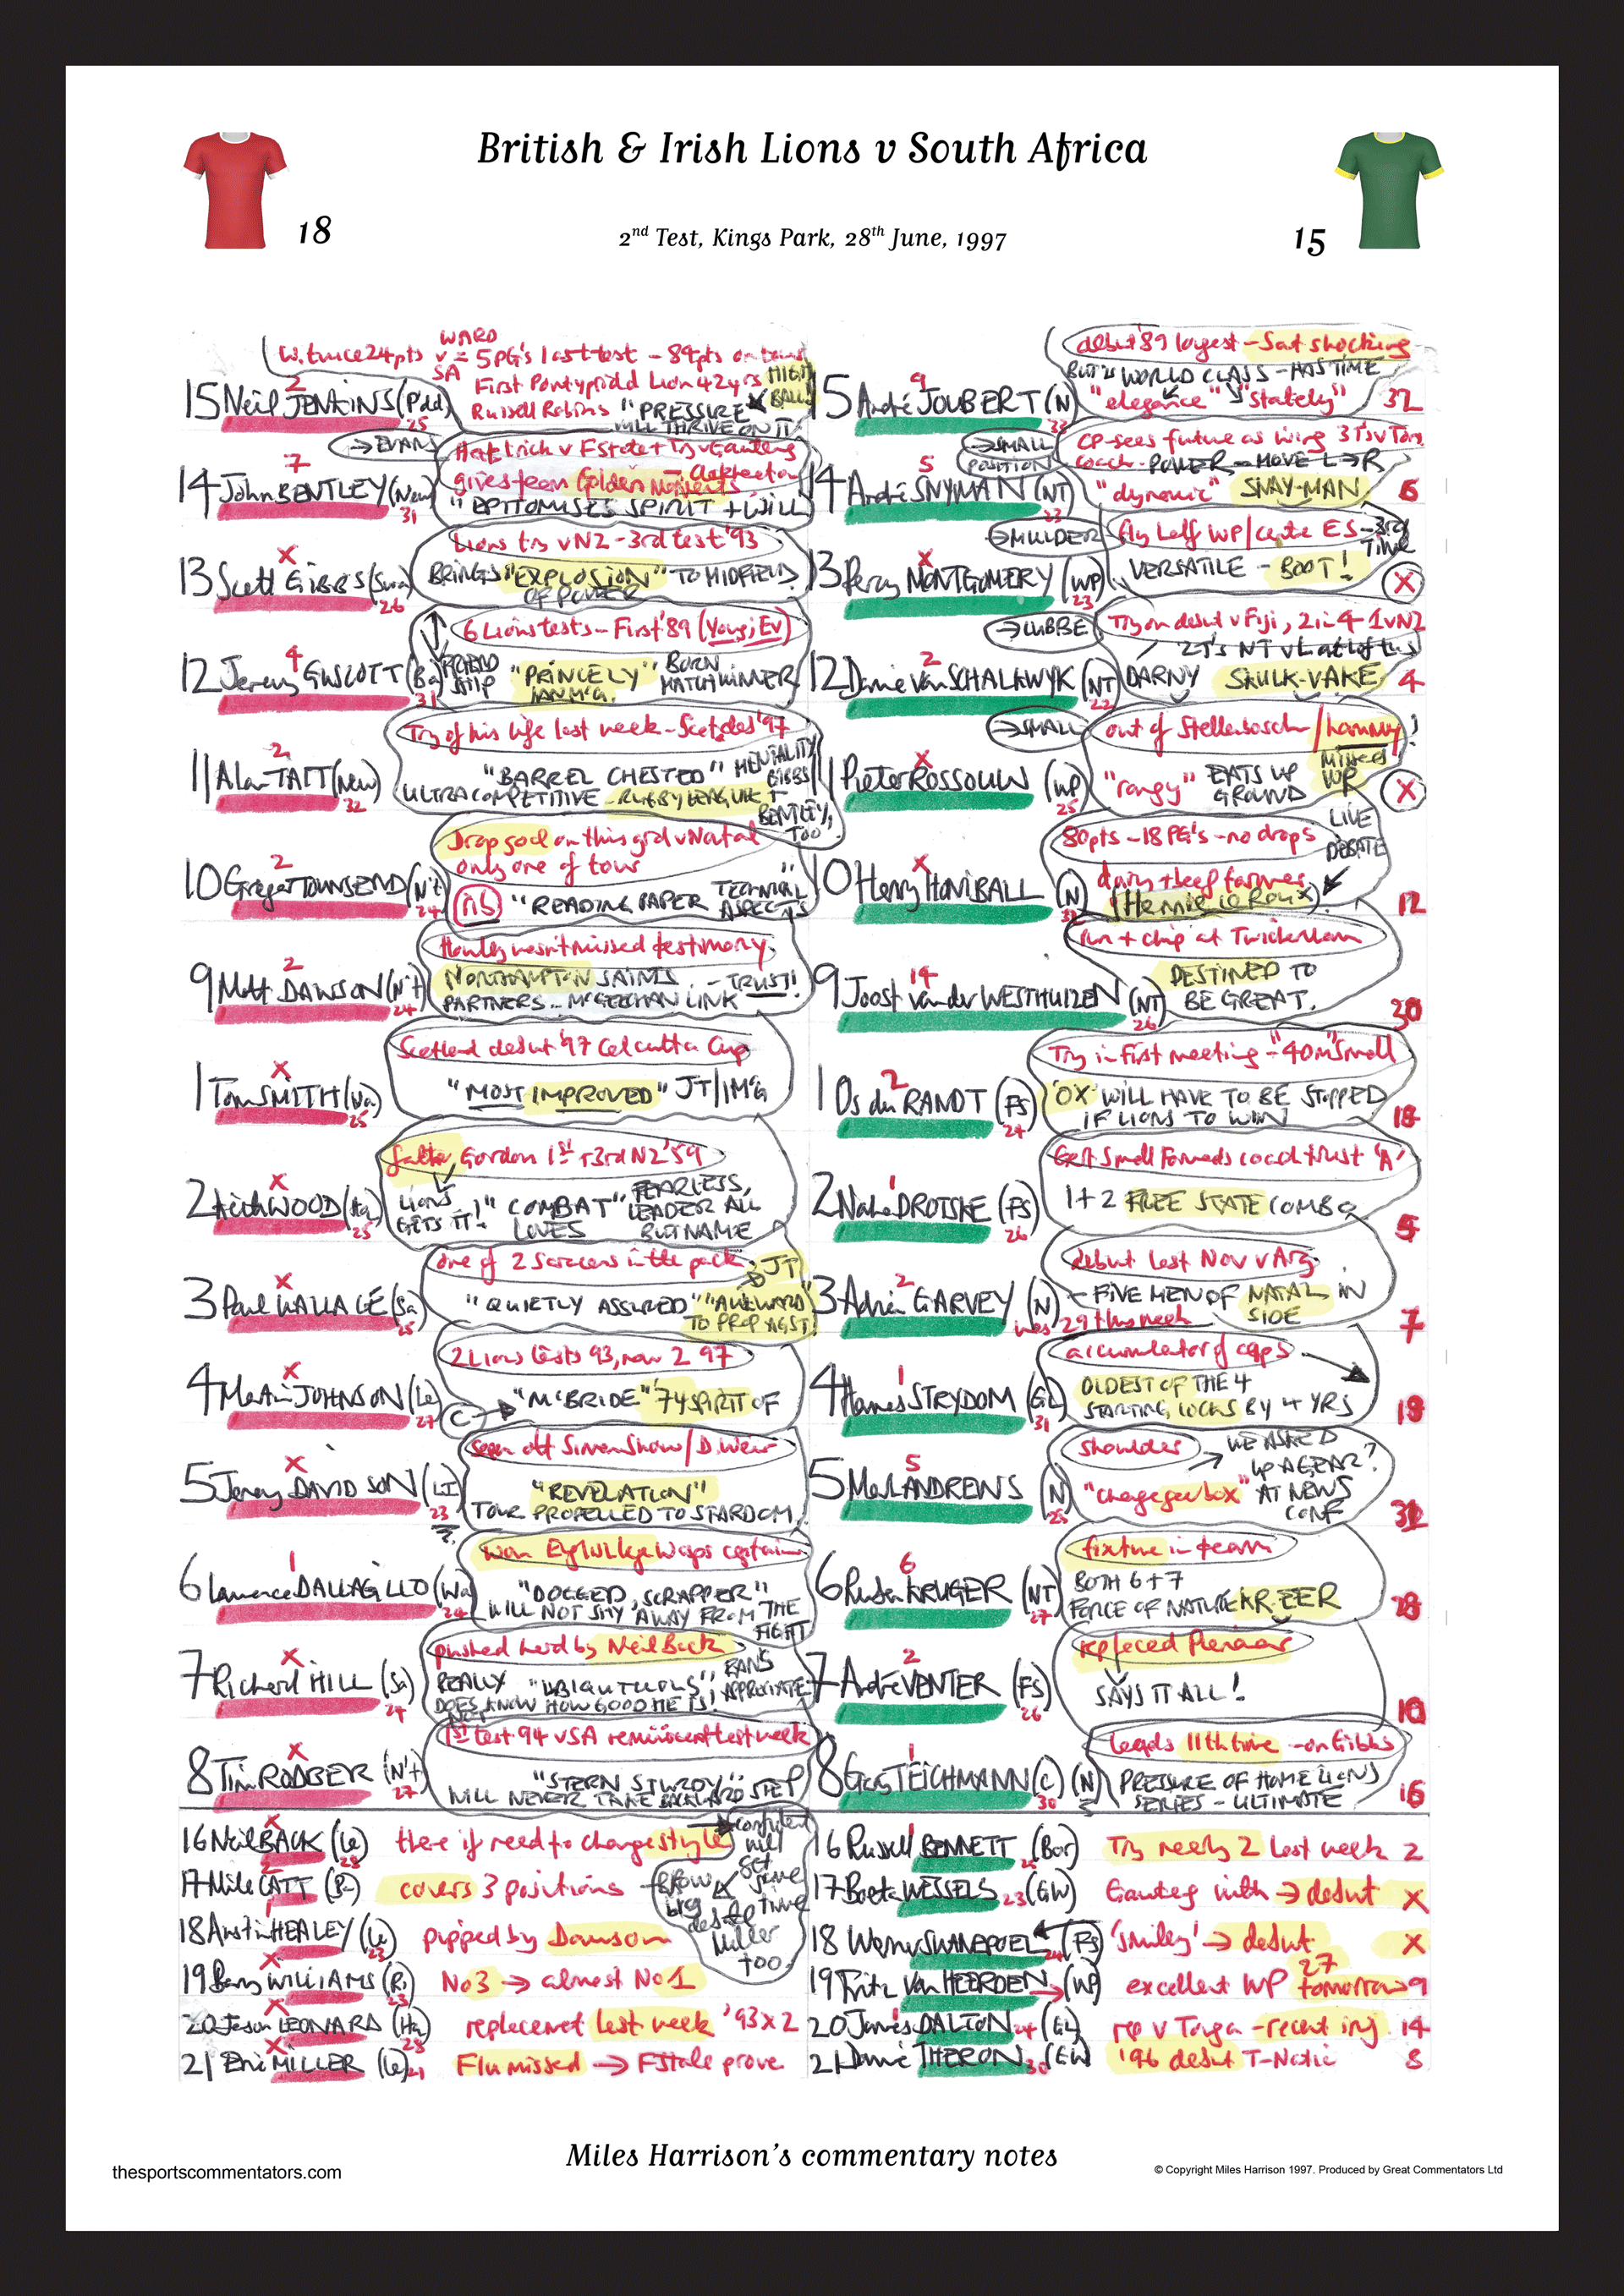 British & Irish Lions v South Africa
18
15
2nd Test, Kings Park, 28th June, 1997
WARD
W. twice 24pts v = 5PG's last test - 89pts on
SA First Pontypridd Lion 42yrs HIGH BALL
2
15 Neil JENKINS (P'dd) 25
Russell Robins "PRESSURE
WILL THRIVE ON IT
→EVANS
Hat trick v F State + Try v Gauteng
7
14 John BENTLEY (New) 31
gives team Golden Moments
"EPITOMISES SPIRIT + WILL
Lions try v NZ - 3rd test '93
X
13 Scott GIBBS (Swa) 26
BRINGS "EXPLOSION" TO MIDFIELD
OF POWER
6 Lions tests - First '89 (Young, Ev)
4
12 Jeremy GUSCOTT (Ba) 31
"PRINCELY" BORN
IAN McG. MATCHWINNER
Try of his life last week - Scot des '97
2
11 Alan TAIT (New) 32
"BARREL CHESTED" MENTALITY
ULTRA COMPETITIVE - RUGBY LEAGUE GIBBS +
BENTLEY, TOO
Drop goal on this grd v Natal
only one of tour
2
10 Gregor TOWNSEND (N't) 24
nb "READING PAPER TECHNICAL
ASPECTS
Howley hasn't missed testimony
2
9 Matt DAWSON (N't) 24
NORTHAMPTON SAINTS - TRUST!
PARTNERS .. McGEECHAN LINK
Scotland debut '97 Calcutta Cup
X
1 Tom SMITH (Wa) 25
"MOST IMPROVED" JT/IMG
father Gordon 1st + 3rd NZ '59
X
2 Keith WOOD (Ha) 25
LIONS GETS IT! "COMBAT" LOVES
FEARLESS, LEADER ALL BUT NAME
one of 2 Saracens in the pack
X
3 Paul WALLACE (Sa) 25
"QUIETLY ASSURED" JT "AWKWARD"
TO PROP AGST
2 Lions tests 93, now 2 97
X
4 Martin JOHNSON (Le) 27
C → "McBRIDE" '74 SPIRIT OF
seen off Simon Shaw / D. Weir
X
5 Jeremy DAVIDSON (LI) 23
"REVELATION"
TOUR PROPELLED TO STARDOM
won Eng Wasps captain
1
6 Lawrence DALLAGLIO (Wa) 24
"DOGGED, SCRAPPER"
WILL NOT SHY AWAY FROM THE
FIGHT
pushed hard by Neil Back
X
7 Richard HILL (Sa) 24
REALLY "UBIQUITOUS", FANS APPRECIATE
DOES KNOW HOW GOOD HE IS!
1st test 94 v SA reminiscent last week
X
8 Tim RODBER (N't) 27
"STERN STURDY"
WILL NEVER TAKE BACKWARD STEP
X
16 Neil BACK (Le) 28 there if need to change style
2
17 Mike CATT (B) covers 3 positions
1
18 Austin HEALEY (Le) 23 pipped by Dawson
X
19 Barry WILLIAMS (R) 23 No 3 → almost No 1
X
20 Jason LEONARD (Ha) 28 replacement last week '93 x 2
X
21 Eric MILLER (Le) 21 Flu missed → F State prove
confident will
time
Miller
too.
debut '89 longest - Sat shocking
BUT IS WORLD CLASS - HAS TIME
9
15 André JOUBERT (N) 33 "elegance" "stately" 32
→SMALL
POSITION
CP - sees future as wing 3 Ts v Ton
coach - POWER - MOVE L→R
5
14 André SNYMAN (NT) 23 "dynamic" SNAY-MAN 6
→MULDER
fly half WP / centre ES - 3rd TIME
X
13 Percy MONTGOMERY (WP) 23 VERSATILE - BOOT! X
→LUBBE
Try on debut v Fiji, 2 in 4 - 1 v NZ
2 T's NT v L at Loftus
2
12 Danie van SCHALKWYK (NT) 22 DARNY SKULK-VAKE 4
→SMALL
out of Stellenbosch / hammy!
MISSED WP
X
11 Pieter ROSSOUW (WP) 25 "rangy" EATS UP GROUND X
80pts - 18 PG's - no drops
LIVE DEBATE
dairy + beef farmer
X
10 Henry HONIBALL (N) 32 (Hennie le Roux) 12
run + chip at Twickenham
14
9 Joost van der WESTHUIZEN (NT) 26
DESTINED TO
BE GREAT. 30
Try in first meeting - "40m" Small
2
1 Os du RANDT (FS) 24
'OX' WILL HAVE TO BE STOPPED
IF LIONS TO WIN 18
Gert Smal Forwards coach trust 'A'
1
2 Naka DROTSKE (FS) 26
1 + 2 FREE STATE COMBO 5
debut last Nov v Arg
2
3 Adrian GARVEY (N)
was 29 this week
- FIVE MEN OF NATAL IN
SIDE 7
accumulator of caps
1
4 Hannes STRYDOM (GL) 31
OLDEST OF THE 4
STARTING LOCKS BY 4 YRS 19
shoulder → WE ASKED
UP A GEAR?
5
5 Mark ANDREWS (N) 25 "change gearbox" AT NEWS
CONF
fixture in team
6
6 Ruben KRUGER (NT) 27
BOTH 6 + 7
FORCE OF NATURE KR-EER 28
replaced Pienaar
2
7 André VENTER (FS) 26
SAYS IT ALL! 10
Leads 11th time - on Gibbs
1
8 Gary TEICHMANN (C) (N) 30
PRESSURE OF HOME LIONS
SERIES - ULTIMATE 16
1
16 Russell BENNETT (Bor) Try nearly 2 last week 2
17 Boeta WESSELS 23 (GW) Gauteng with → debut X
18 Werner SWANEPOEL (FS) 'smiley' → debut X
19 Fritz van HEERDEN → (WP) excellent WP 27 tomorrow 9
20 James DALTON 24 (GL) rep v Tonga - recent inj 14
21 Dawie THERON 30 (GW) '96 debut T-Nations 8
Miles Harrison's commentary notes
thesportscommentators.com
© Copyright Miles Harrison 1997. Produced by Great Commentators Ltd